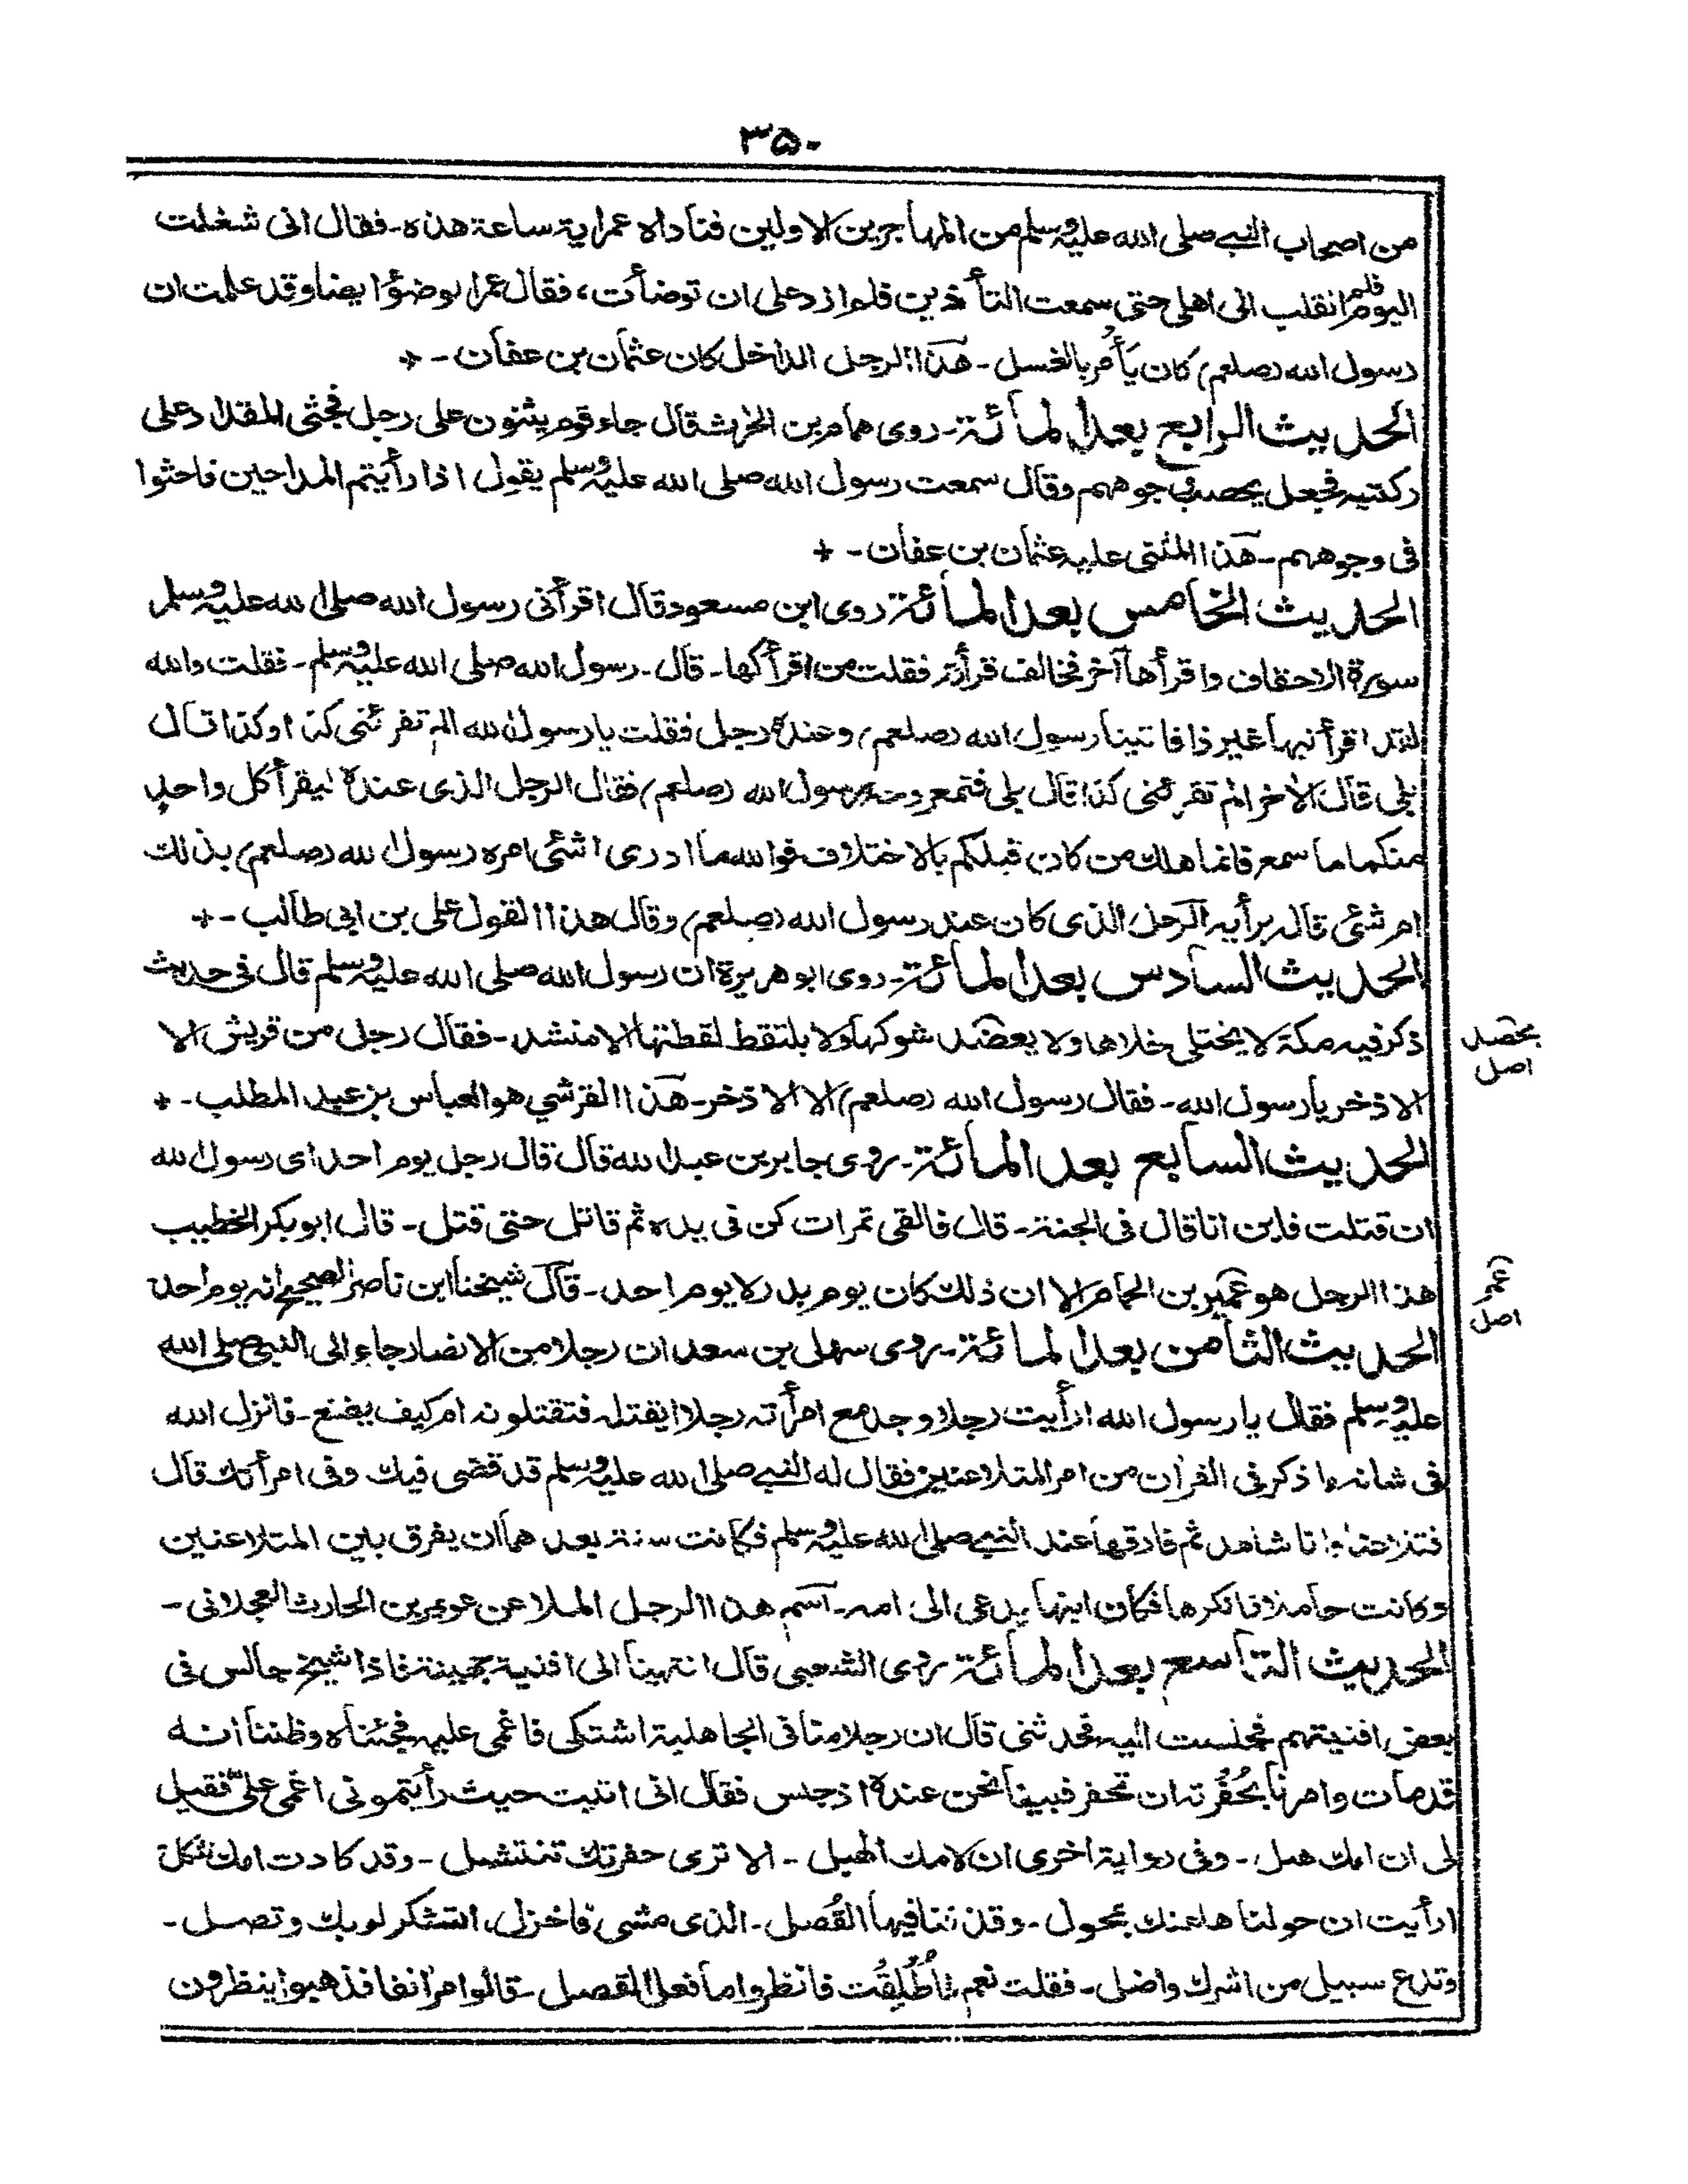 ٣٥٠
من اصحاب النبي صلى الله عليه وسلم من المهاجرين الاولين فناداه عمر اية ساعة هذه۔ فقال انى شغلت
اليوم فلم انقلب الى اهلى حتى سمعت التأذين فلم ازد على ان توضأت، فقال عمر الوضوٴ ايضا وقد علمت ان
رسول الله (صلعم) كان يأمر بالغسل۔ هذا الرجل الداخل كان عثمان بن عفان۔ +
الحديث الرابع بعد المائة۔ روى همام بن الحرث قال جاء قوم يثنون على رجل فجثى المقداد على
ركبتيه فجعل يحصب في وجوههم وقال سمعت رسول الله صلى الله عليه وسلم يقول اذا رأيتم المداحين فاحثوا
فى وجوههم۔ هذا المثنى عليه عثمان بن عفان۔ +
الحديث الخامس بعد المائة روى ابن مسعود قال اقرأنى رسول الله صلى الله عليه وسلم
سورة الاحقاف واقرأها آخر فخالف قرأته فقلت من اقرأكها۔ قال۔ رسول الله صلى الله عليه وسلم۔ فقلت والله
لقد اقرأنيها غير ذا فاتينا رسول الله (صلعم) وعنده رجل فقلت يا رسول الله الم تقرئنى كذا وكذا قال
بلى قال الأخر الم تقرئنى كذا قال بلى فتمعر وجه رسول الله (صلعم) فقال الرجل الذى عنده ليقرأ كل واحد
منكما ما سمع فانما هلك من كان قبلكم بالاختلاف فوالله ما ادرى اشئى امره رسول الله (صلعم) بذلك
ام شئى قال برأيه الرجل الذى كان عند رسول الله (صلعم) وقال هذا القول على بن ابى طالب۔ +
الحديث السادس بعد المائة۔ روى ابو هريرة ان رسول الله صلى الله عليه وسلم قال فى حديث
ذكر فيه مكة لا يختلى خلاها ولا يعضد شوكها ولا يلتقط لقطتها الا منشد۔ فقال رجل من قريش الا
الاذخر يا رسول الله۔ فقال رسول الله (صلعم) الا الاذخر۔ هذا القرشي هو العباس بن عبد المطلب۔ +
الحديث السابع بعد المائة۔ روى جابر بن عبد الله قال قال رجل يوم احد اى رسول الله
ان قتلت فاين انا قال فى الجنة۔ قال فالقى تمرات كن فى يده ثم قاتل حتى قتل۔ قال ابو بكر الخطيب
هذا الرجل هو عمير بن الحمام الا ان ذلك كان يوم بدر لا يوم احد۔ قال شيخنا ابن ناصر الصحيح انه يوم احد
الحديث الثامن بعد المائة۔ روى سهل بن سعد ان رجلا من الانصار جاء الى النبي صلى الله
عليه وسلم فقال يا رسول الله ارأيت رجلا وجد مع امرأته رجلا ايقتله فتقتلونه ام كيف يصنع۔ فانزل الله
فى شانه ما ذكر فى القرأن من امر المتلاعنين فقال له النبي صلى الله عليه وسلم قد قضى فيك وفى امرأتك قال
فتلاعنا وانا شاهد ثم فارقها عند النبي صلى الله عليه وسلم فكانت سنة بعدهما ان يفرق بين المتلاعنين
وكانت حاملا فانكرها فكان ابنها يدعى الى امه۔ اسم هذا الرجل الملاعن عويمر بن الحارث العجلانى۔
الحديث التاسع بعد المائة روى الشعبى قال انتهينا الى افنية جهينة فاذا شيخ جالس فى
بعض افنيتهم فجلست اليه فحدثنى قال ان رجلا منا فى الجاهلية اشتكى فاغمى عليه فجئناه وظننا انه
قد مات وامرنا بحُفْرته ان تحفر فبينا نحن عنده اذ جلس فقال انى اتيت حيث رأيتمونى اغمى علىّ فقيل
لى ان امك هبل۔ وفى رواية اخرى ان لامك الهبل۔ الا ترى حفرتك تنتشل۔ وقد كادت امك تثكل
ارأيت ان حولناها عنك بمحول۔ وقذفنا فيها القُصل۔ الذى مشى فاخزل، اتشكر لربك وتصل۔
وتدع سبيل من اشرك واضل۔ فقلت نعم فأُطْلِقْت فانظروا ما فعل القصل۔ قالوا مرّ انفا فذهبوا ينظرون
يحصد
اصل
(عمر)
اصل